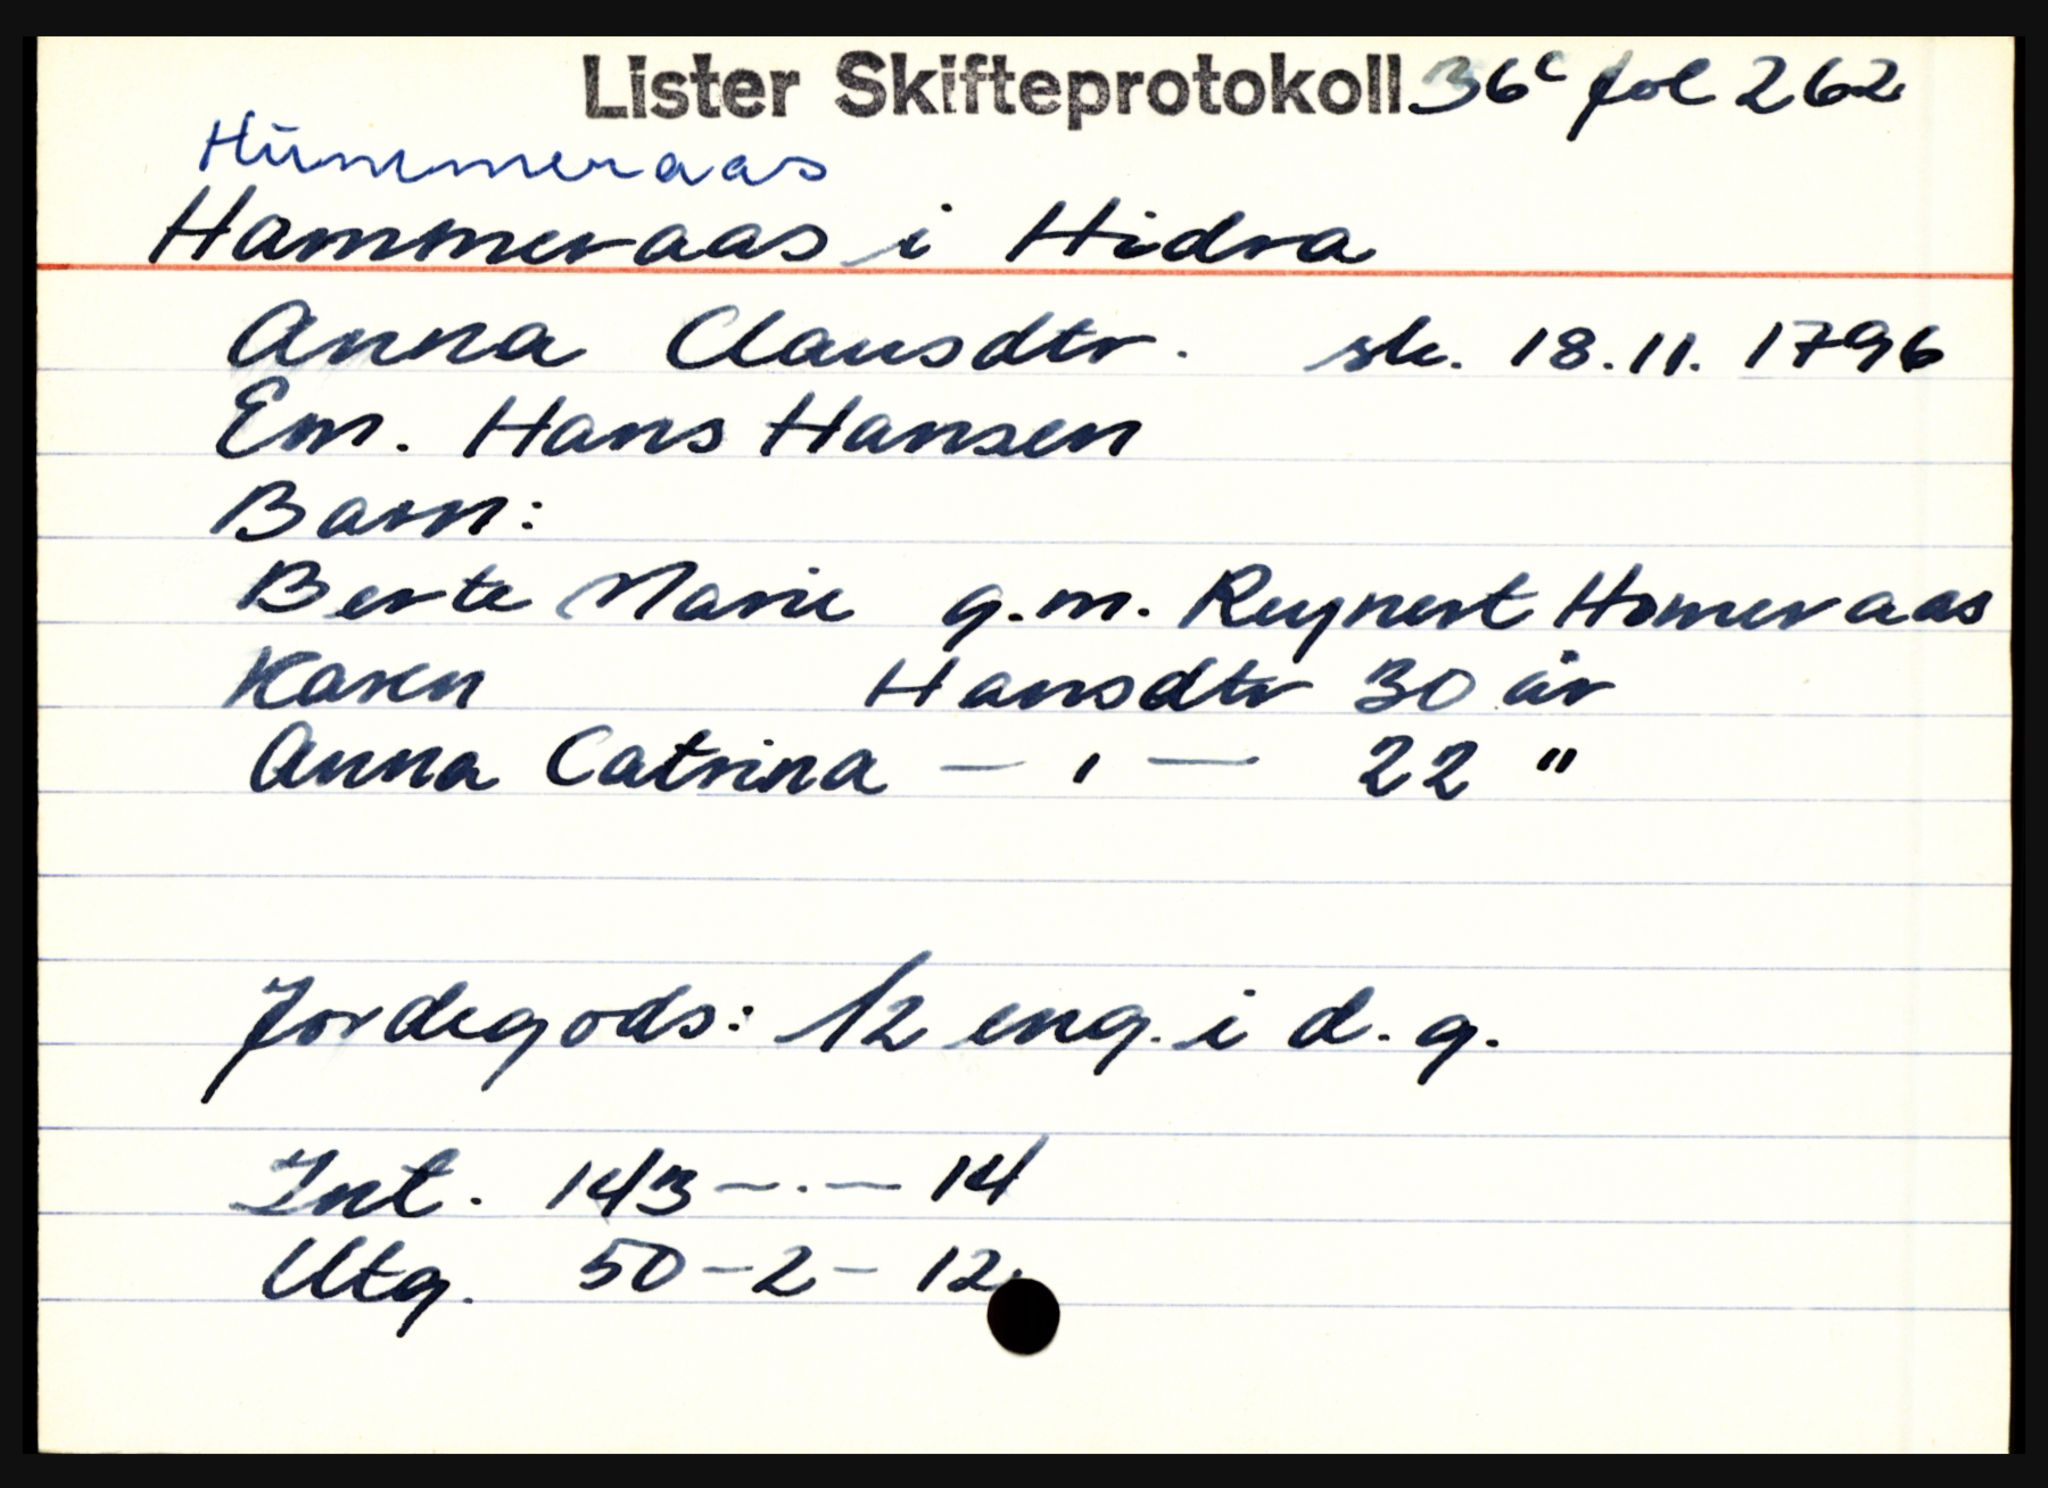 Lister Skifteprotokoll 36c fol 262
Hummeraas
Hammeraas i Hidra
Anna Clausdtr. sk. 18.11. 1796
Em. Hans Hansen
Barn:
Berte Marie g.m. Reynert Homeraas
Karen Hansdtr 30 år
Anna Catrina — ' — 22 "
Jordegods: 1/2 eng. i d. g.
Int. 143 — . — 14
Utg. 50 - 2 - 12